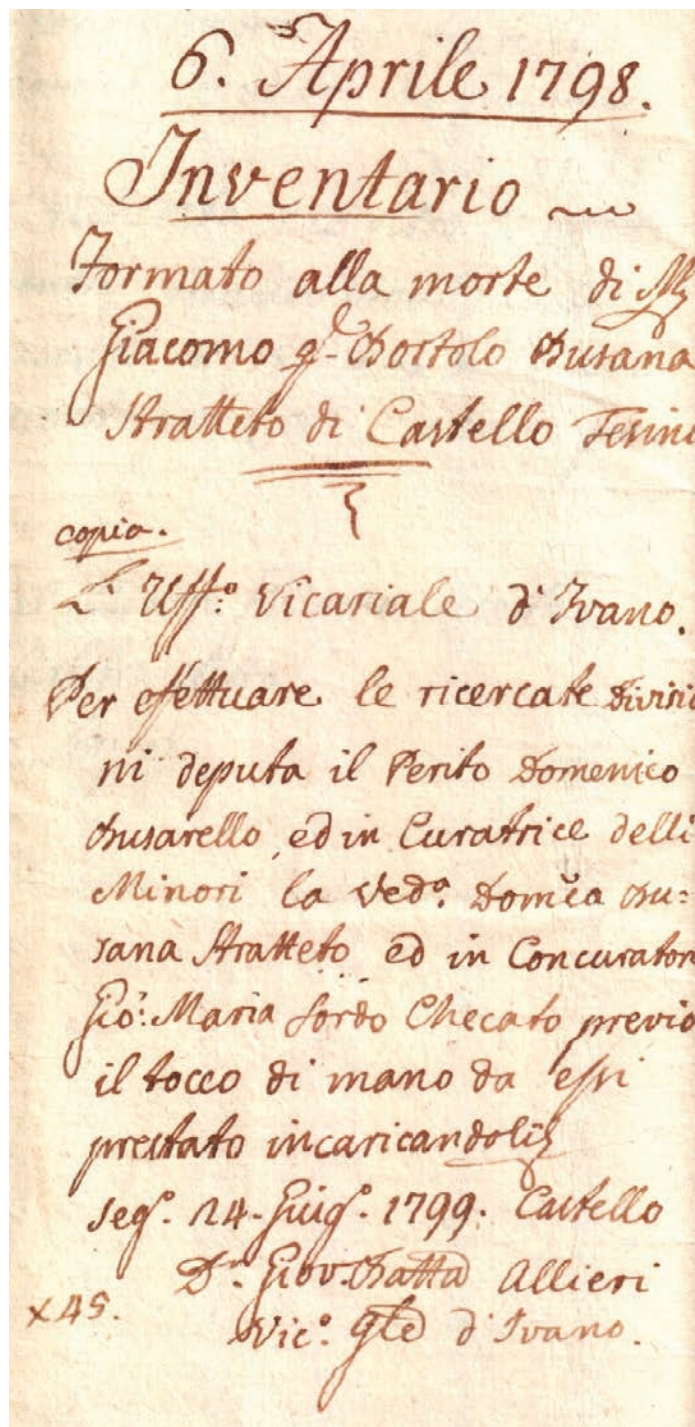 6. Aprile 1798.
Inventario
Formato alla morte di
Giacomo qd. Bortolo Busana
Stratteto di Castello Tesino
copia.
L'Uffo: Vicariale d'Ivano.
Per efettuare le ricercate Divisio
ni deputa il Perito Domenico
Busarello, ed in Curatrice delli
Minori la Veda. Domca Bu=
sana Stratteto ed in Concurator
Gio: Maria Sordo Checato previo
il tocco di mano da essi
prestato incaricandoli
sego. 24. Giugo. 1799. Castello
Dn. Giov. Batta Allieri
x45.
Vico. Gle d'Ivano.